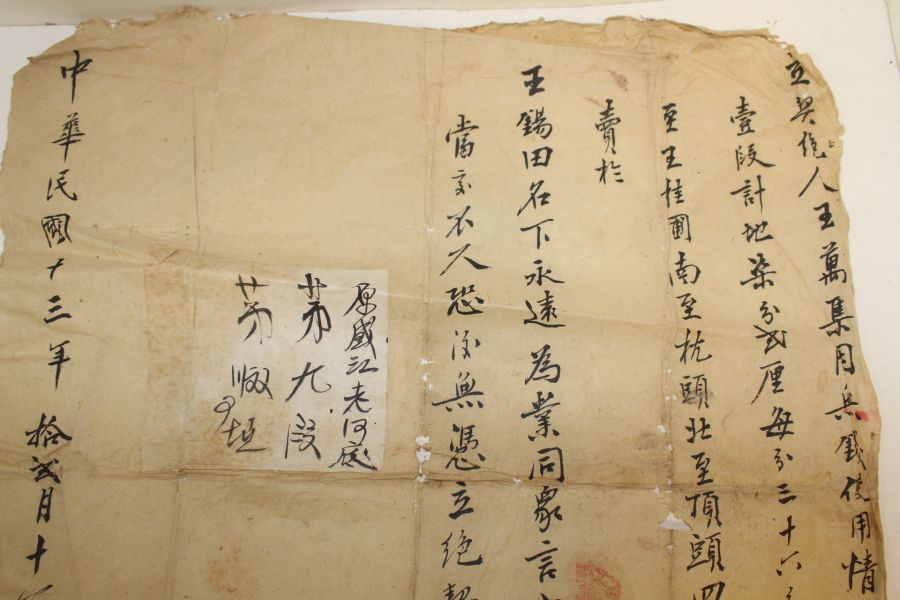 立契絶人王萬集因無錢使用情
壹段計地柒分貳厘每分三十六
至王桂圃南至杭頭北至頂頭四
賣於
王錫田名下永遠為業同衆言
當交不欠恐後無憑立絶契
原盛江老河底
第九段
第
垣
中華民國十三年 拾貳月十